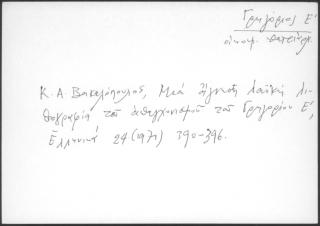 Γρηγόριος Ε'
οικουμ. πατριάρχ.
Κ. Α. Βακαλόπουλος, Μιά άγνωστη λαϊκή λι-
θογραφία τοῦ ἀπαγχονισμοῦ τοῦ Γρηγορίου Ε',
Ἑλληνικά 24 (1971) 390-396.